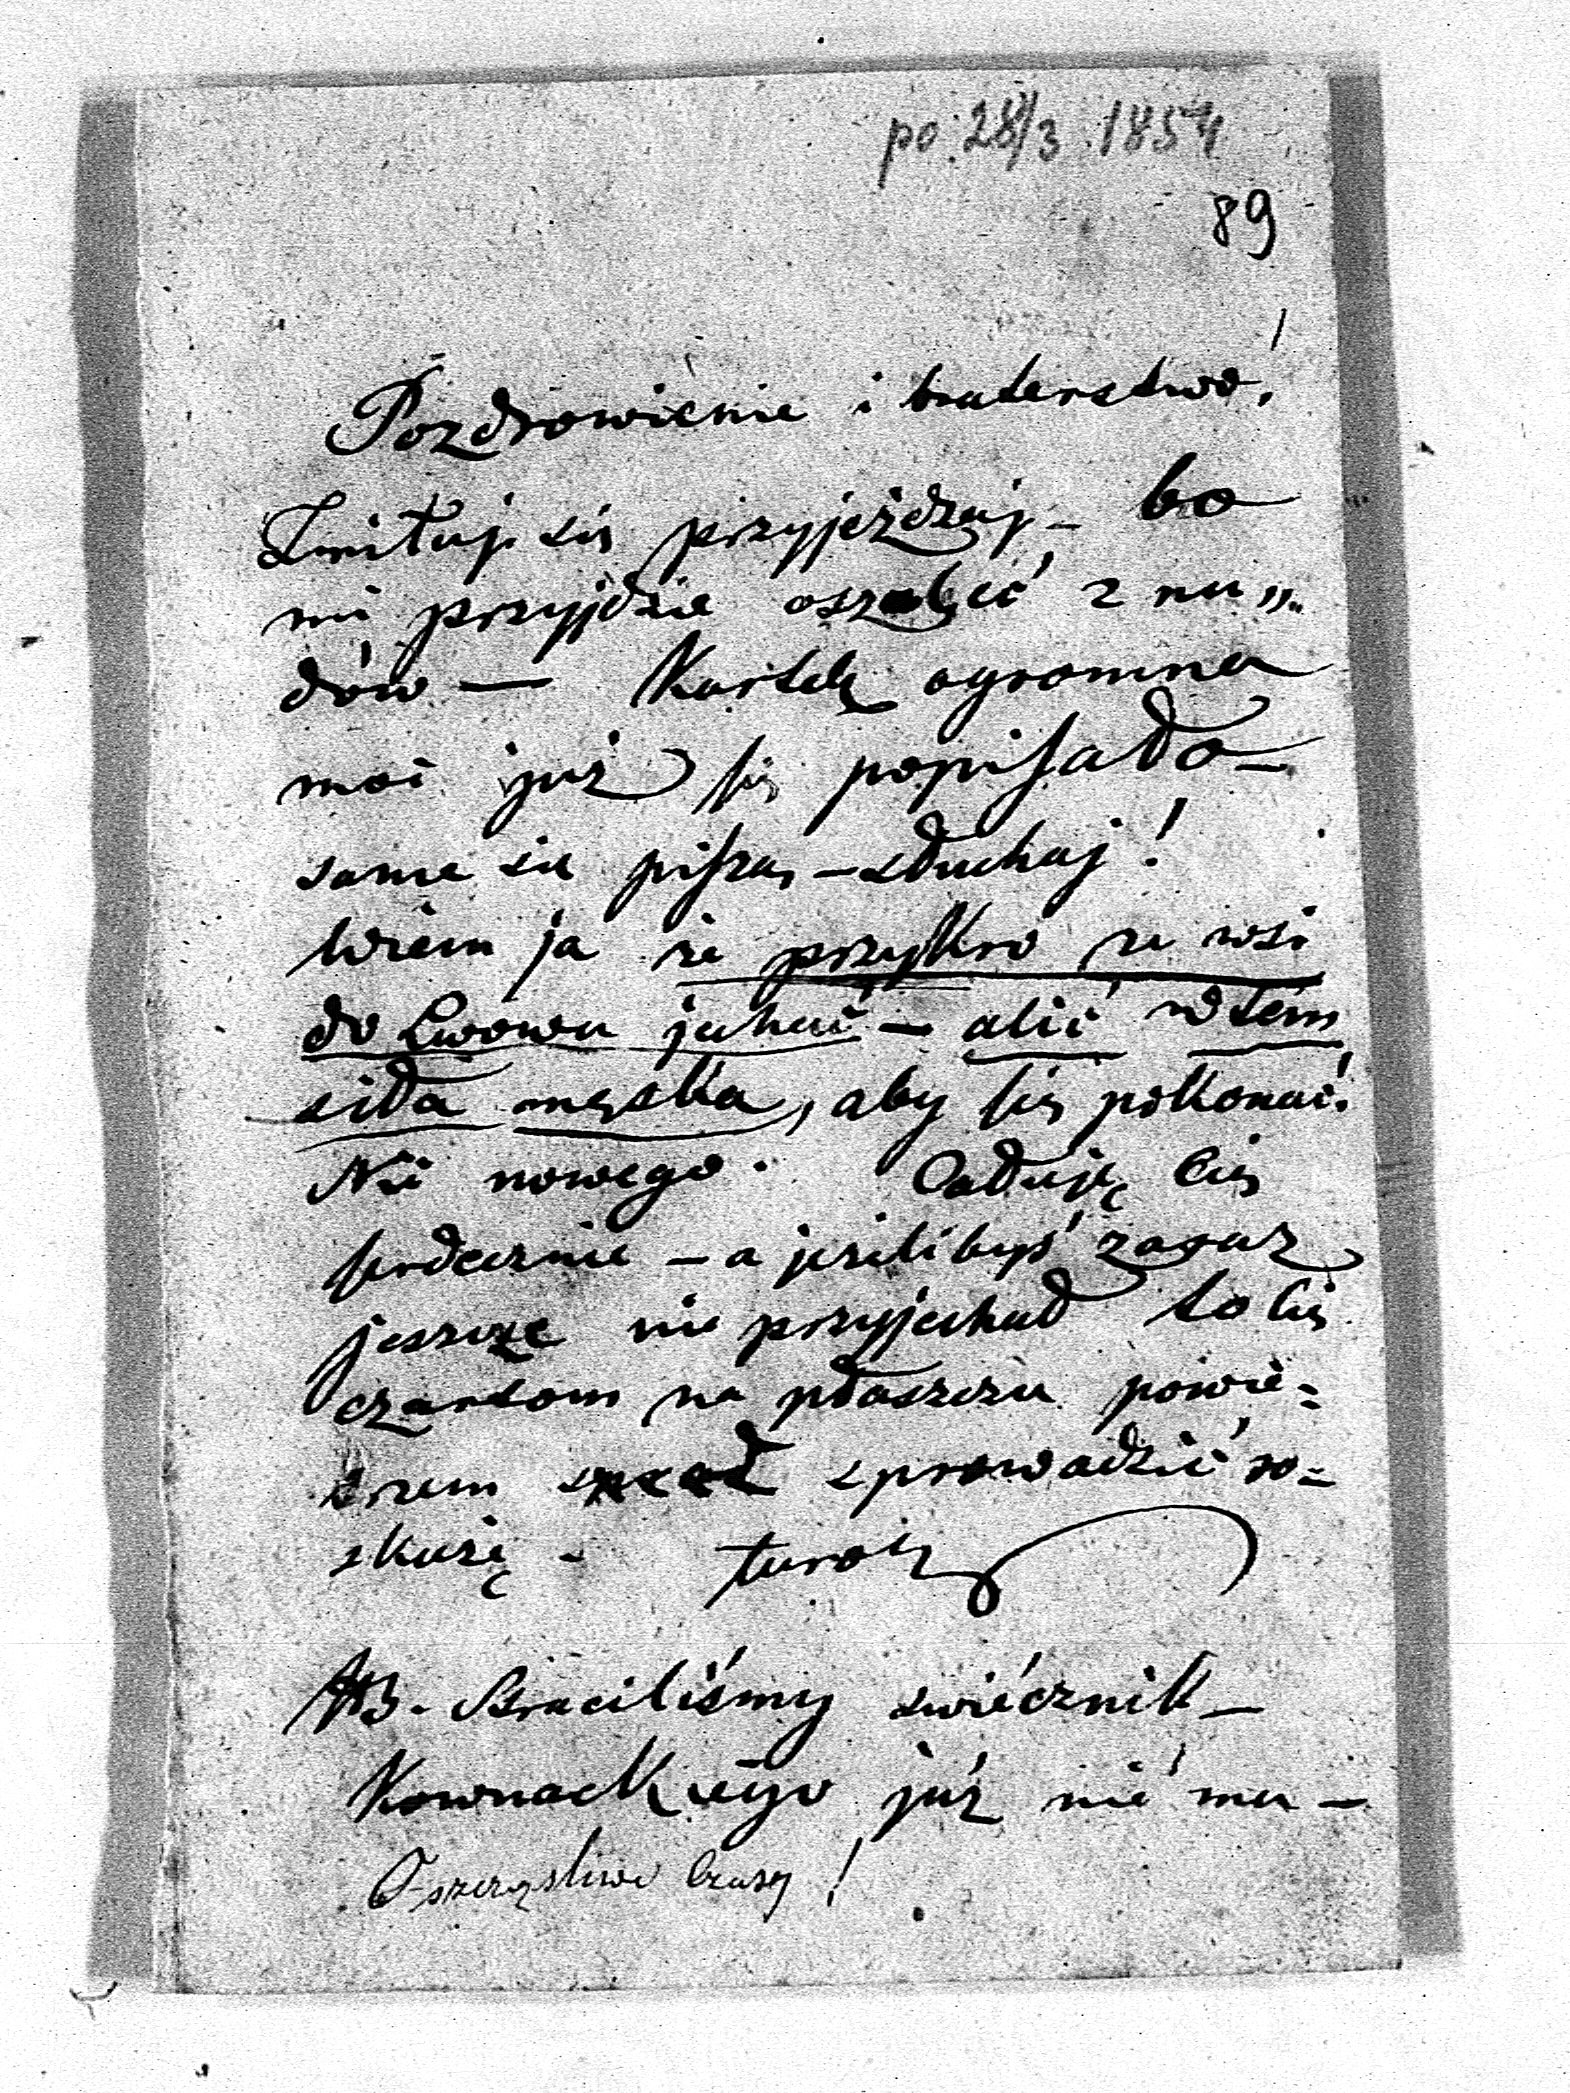 po 28/3 1854
89
Pozdrowienie i braterstwo!
Zmiłuj się przyjeżdżaj – bo
mi przyjdzie oszaleć z nu„
dów — Kartkę ogromna
moi już się popisała –
same się piszą – słuchaj!
Wiem ja że przykro ze wsi
do Lwowa jechać – alić w tém
siła męska, aby się pokonać.
Nic nowego. Całuję Cię
serdecznie – a jeżelibyś zaraz
jeszcze nie przyjechał to Cię
czartom na płaszczu powie=
trzem sprowadzić ro=
zkażę –
NB. Straciliśmy swiécznik –
Kownackiego już nié ma –
O szczęsliwe Czasy!